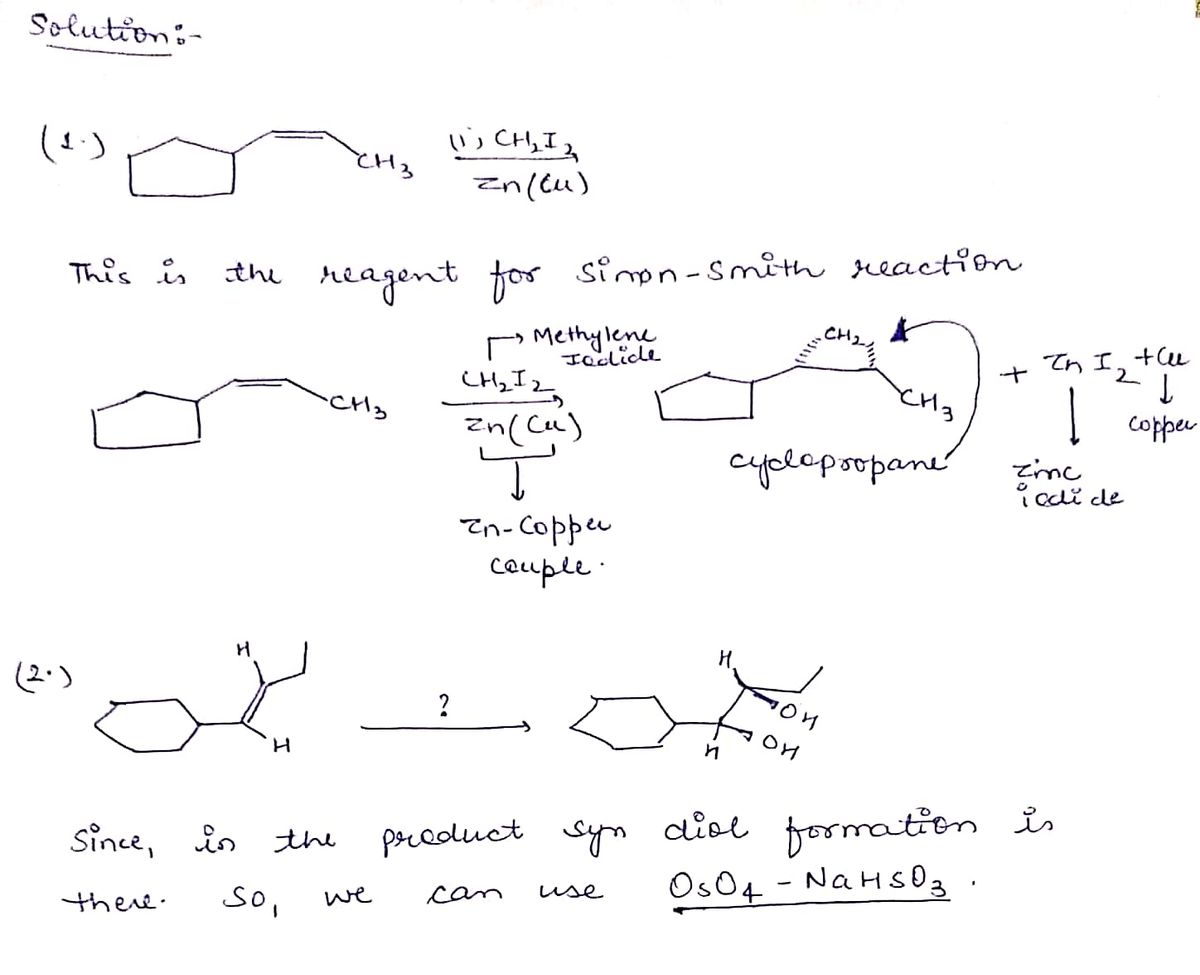 Solution:-
(1.)
CH3
(i) CH2I2
Zn(Cu)
This is the reagent for Simon-Smith reaction
→ Methylene Iodide
CH2I2
Zn(Cu)
Zn-Copper
couple.
CH3
CH2
CH3
cyclopropane
+ Zn I2 + Cu
Copper
Zinc
iodide
(2.)
H
H
?
H
OH
H
OH
Since, in the product syn diol formation is
there. So, we can use OsO4 - NaHSO3.